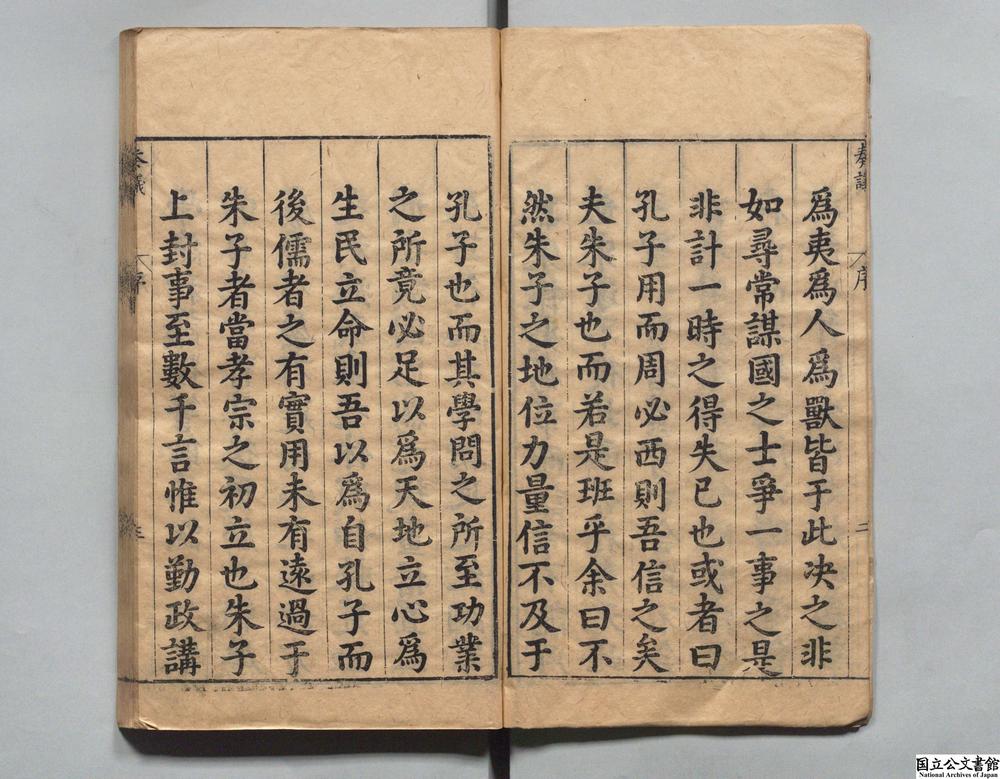 奏議
序
二
爲夷爲人爲獸皆于此决之非
如尋常謀國之士爭一事之是
非計一時之得失已也或者曰
孔子用而周必西則吾信之矣
夫朱子也而若是班乎余曰不
然朱子之地位力量信不及于
孔子也而其學問之所至功業
之所竟必足以爲天地立心爲
生民立命則吾以爲自孔子而
後儒者之有實用未有遠過于
朱子者當孝宗之初立也朱子
上封事至數千言惟以勤政講
奏議
序
三
国立公文書館
National Archives of Japan